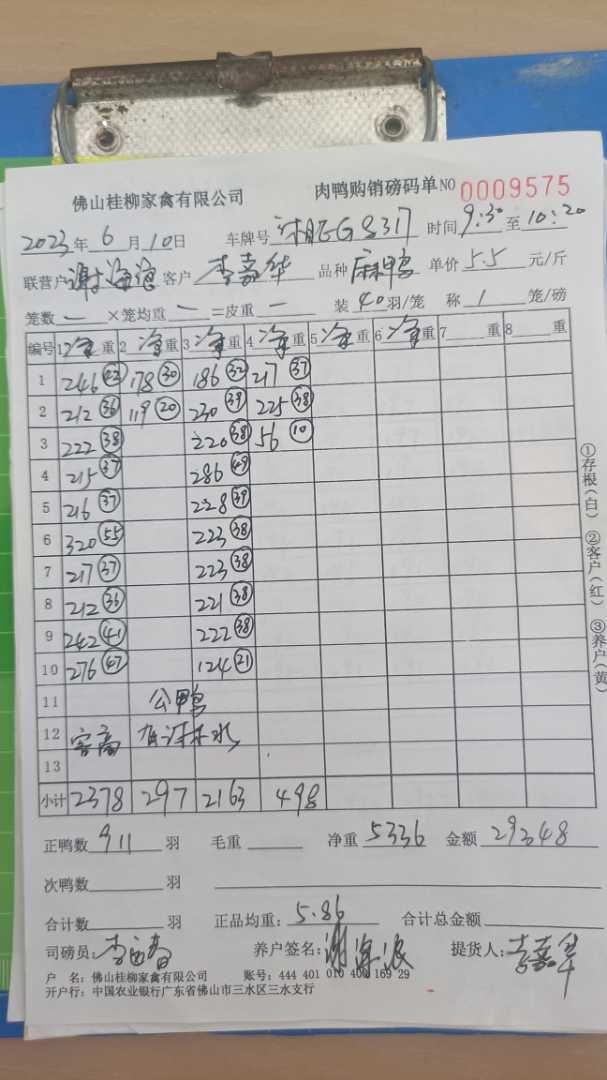 佛山桂柳家禽有限公司 肉鸭购销磅码单 NO 0009575
2023年 6月 10日 车牌号 G8317 时间 9:30 至 10:20
联营户 谢海浪 客户 李嘉华 品种 麻鸭 单价 5.5 元/斤
笼数 一 ×笼均重 一 =皮重 一 装 40 羽/笼 称 1 笼/磅
编号 1 净重 2 净重 3 净重 4 净重 5 净重 6 净重 7 重 8 重
1 246 178 30 186 32 217 37
2 212 36 119 20 230 39 225 38
3 222 38 220 38 56 10
4 215 37 286 49
5 216 37 228 39
6 320 55 223 38
7 217 37 223 38
8 212 36 221 38
9 242 41 222 38
10 276 47 124 21
11 公鸭
12
13
小计 2378 297 2163 498
正鸭数 911 羽 毛重 净重 5336 金额 29348
次鸭数 羽
合计数 羽 正品均重: 5.86 合计总金额
司磅员: 养户签名: 谢海浪 提货人: 李嘉华
户 名: 佛山桂柳家禽有限公司 账号: 444 401 010 400 169 29
开户行: 中国农业银行广东省佛山市三水区三水支行
①存根(白) ②客户(红) ③养户(黄)